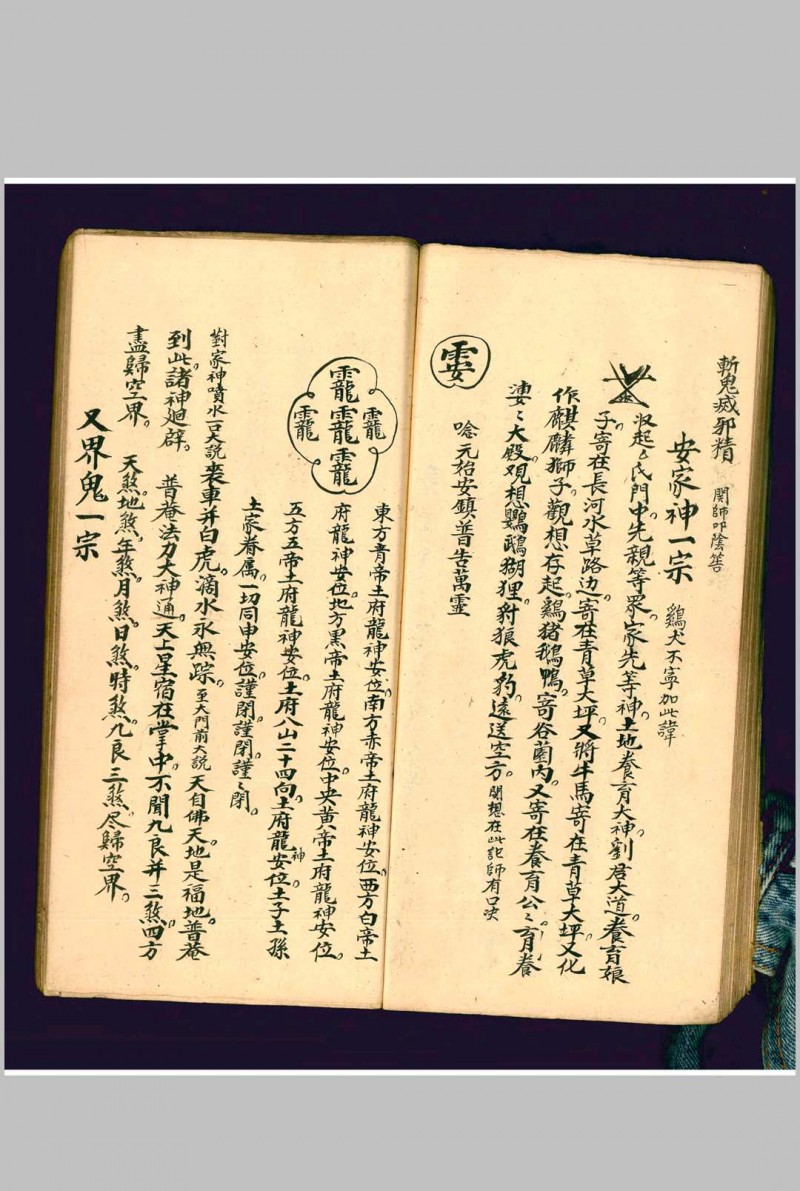 斬鬼滅邪精 閞師叩陰筶
安家神一宗 鷄犬不寧加此諱
収起厶氏門中先親等眾。家先等神。土地養育大神。劉君大道。養育娘
子。寄在長河水草路边。寄在青草大坪。又將牛馬寄在青草大坪。又化
作麒麟獅子。觀想存起。鷄猪鵝鴨。寄谷薗内。又寄在養育公〻。育養
婆〻大殿。观想鸚鵡猢狸。豺狼虎豹。遠送空方。閞想在此記師有口决
唸元始安鎮普告萬靈
東方青帝土府龍神安位。南方赤帝土府龍神安位。西方白帝土
府龍神安位。地方黒帝土府龍神安位。中央黄帝土府龍神安位。
五方五帝土府龍神安位。土府八山二十四向。土府龍神安位。土子土孫
土家眷属。一切同申安位。謹閉。謹閉。謹〻閉。
對家神噴水一口大説 喪車并白虎。滴水永無踪。至大門前大説 天自佛天。地是福地。普庵
到此。諸神廻避。 普庵法力大神通。天上星宿在掌中。不聞九良并三煞。四方
盡歸空界。 天煞。地煞。年煞。月煞。日煞。時煞。九良三煞。尽歸空界。
又界鬼一宗